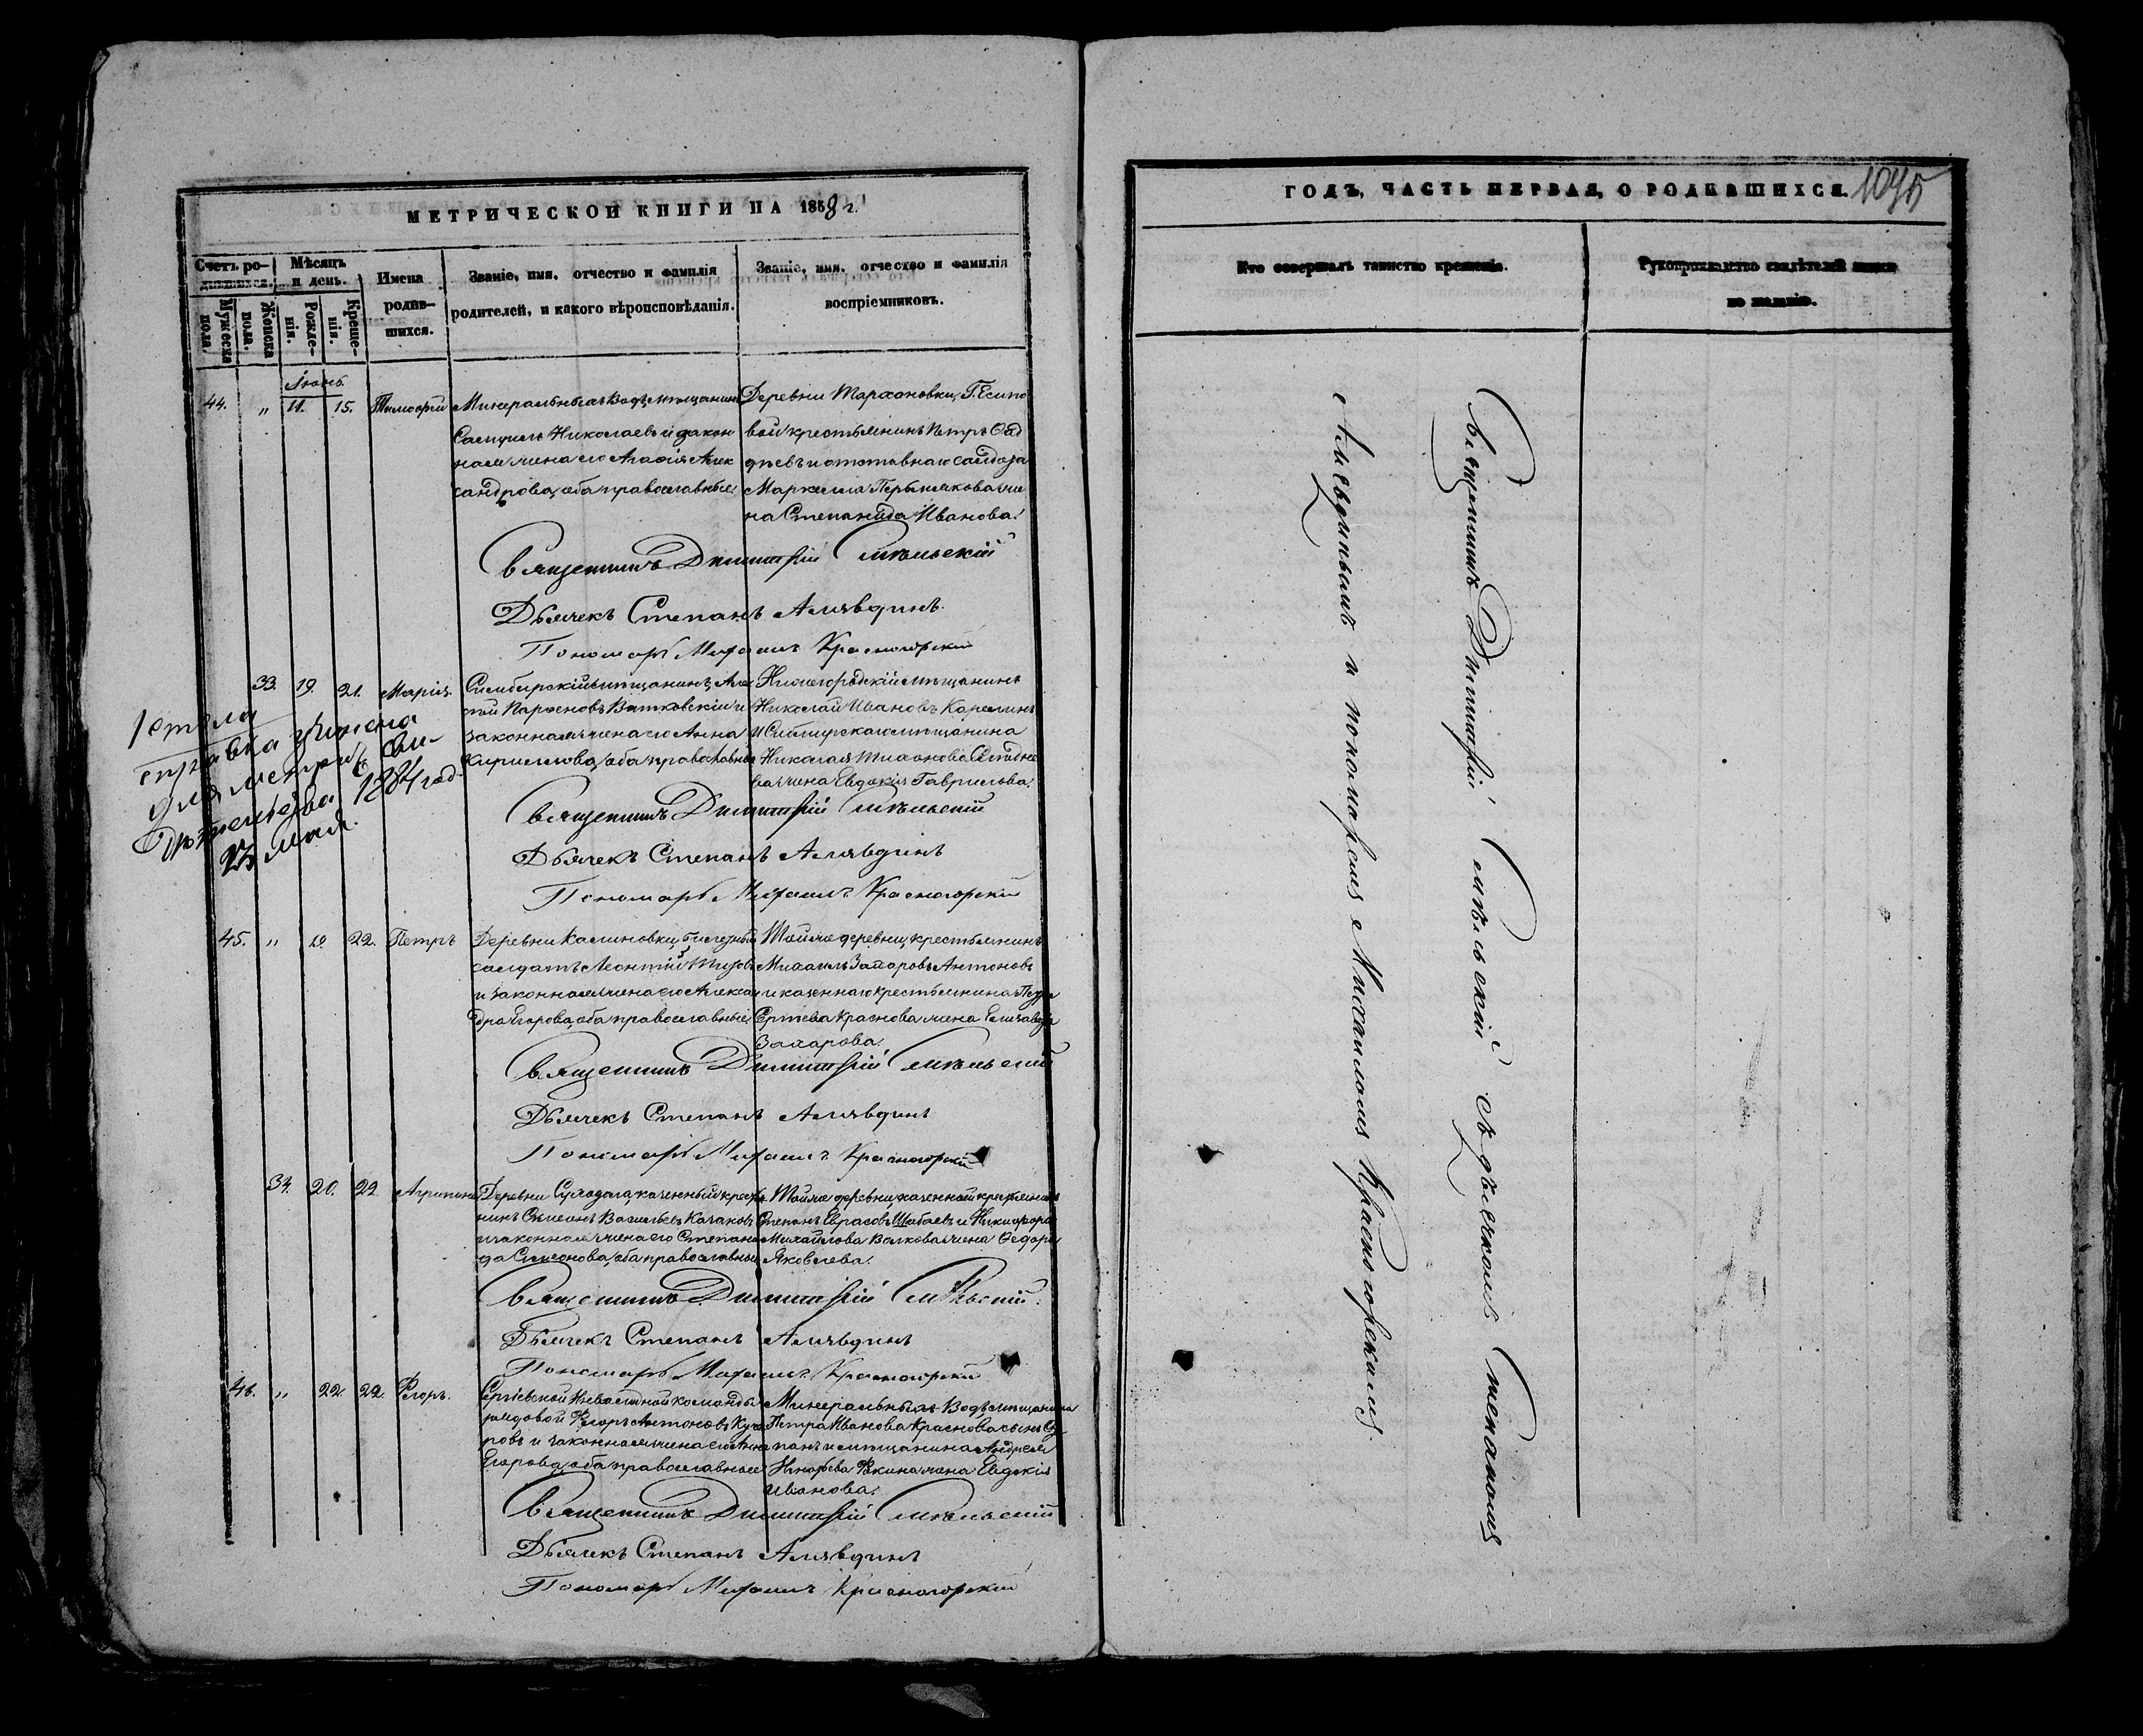 МЕТРИЧЕСКОЙ КНИГИ НА 1858 г.
Счетъ ро-
дившихся.
Мѣсяцъ
и день.
Имена
родив-
шихся.
Званіе, имя, отчество и фамилія
родителей, и какого вѣроисповѣданія.
Званіе, имя, отчество и фамилія
воспріемниковъ.
Мужеска
пола.
Женска
пола.
Рожде-
нія.
Креще-
нія.
Іюнь
44. " 11. 15. Тимофей
Минеральныхъ Водъ мѣщанинъ
Самуилъ Николаевъ и закон
ная жена его Агафія Алек
сандрова, оба православные.
Деревни Шараховки, Г. Есипо
вой крестьянинъ Петръ Фад
дѣевъ и отставнаго солдата
Маркелла Перьмякова же
на Степанида Иванова.
Священникъ Димитрій Смѣльскій
Дьячекъ Степанъ Алявдинъ.
Пономарь Михаилъ Красногорскій
33. 19. 21. Марія.
Симбирскій мѣщанинъ Але
ксѣй Парѳеновъ Вятковскій и
законная жена его Анна
Кириллова, оба православные
Нижегородскій мѣщанинъ
Николай Ивановъ Карелинъ
и Сибирскаго мѣщанина
Николая
жена Евдокія Гаврилова.
Священникъ Димитрій Смѣльскій
Дьячекъ Степанъ Алявдинъ
Пономарь Михаилъ Красногорскій
1 стола
справка учинена
для метрич. сви-
дѣтельства 1884 год.
25 мая.
45. " 19 22. Петръ
Деревни Калиновки, билетный
солдатъ Леонтій
и законная жена его Алексан
дра Егорова, оба православные.
Той же деревни, крестьянинъ
Михаилъ Захаровъ Антоновъ
и казеннаго крестьянина Петра
Сергѣева Краснова жена Елизавета
Захарова.
Священникъ Димитрій Смѣльскій
Дьячекъ Степанъ Алявдинъ
Пономарь Михаилъ Красногорскій
34. 20. 22 Агрипина
Деревни Суходола, казенный кресть
нинъ Симеонъ Васильевъ Казаковъ
и законная жена его Степани
да Симеонова, оба православные
Той же деревни, казенный крестьянинъ
Степанъ Шабаевъ и Никифора
Михайлова Волкова жена Ѳедора
Яковлева.
Священникъ Димитрій Смѣльскій.
Дьячекъ Степанъ Алявдинъ
Пономарь Михаилъ Красногорскій
46. " 22. 22. Егоръ.
Сергіевской Инвалидной команды
рядовой Егоръ Антоновъ
ровъ и законная жена его Анна
Егорова, оба православные
Минеральныхъ Водъ мѣщанина
Петра Иванова Краснова сынъ Сте
панъ и мѣщанина Андрея
жена Евдокія
Иванова.
Священникъ Димитрій Смѣльскій
Дьячекъ Степанъ Алявдинъ
Пономарь Михаилъ Красногорскій
ГОДЪ, ЧАСТЬ ПЕРВАЯ, О РОДИВШИХСЯ.
1095
Кто совершалъ таинство крещенія.
Рукоприкладство свидѣтелей записи
по желанію.
Священникъ Димитрій Смѣльскій съ дьячкомъ Степаномъ
Алявдинымъ и пономаремъ Михаиломъ Красногорскимъ